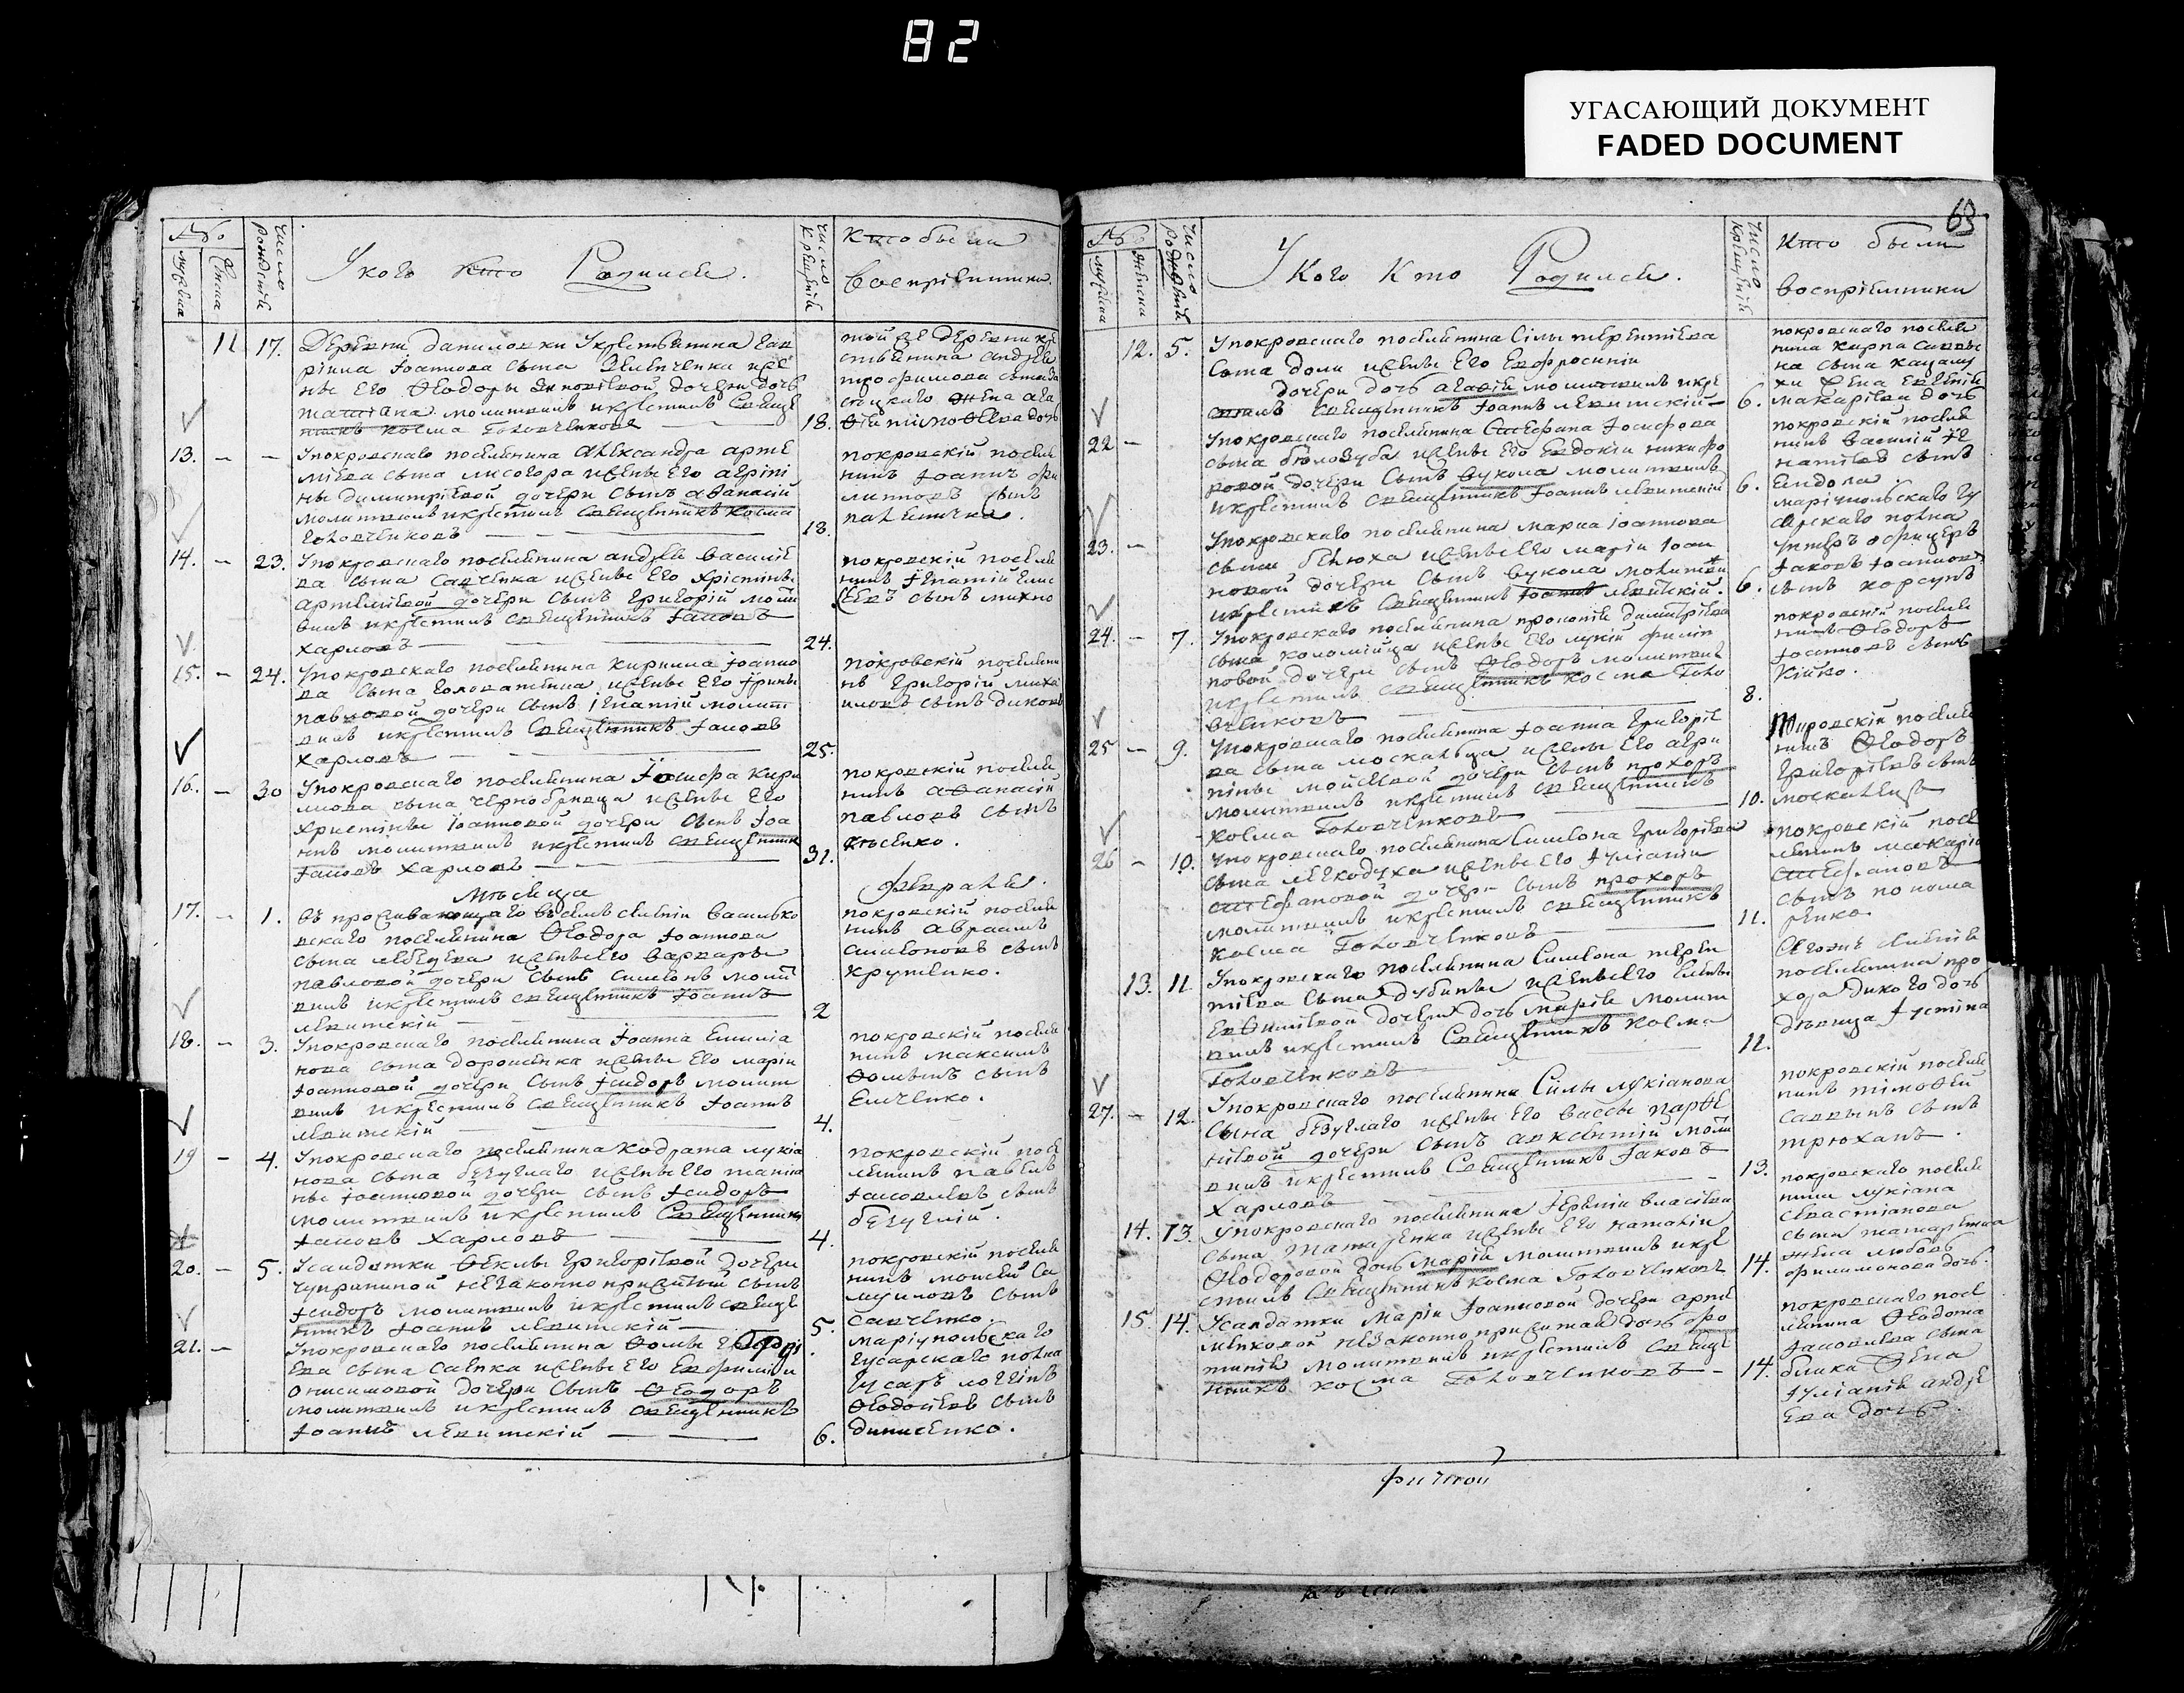 82
УГАСАЮЩИЙ ДОКУМЕНТ
FADED DOCUMENT
№
мужска
женска
число рожденій
У кого кто Родился.
число крещеній
кто были
воспріемники
11 17. Деревни даниловки У крестьянина гав
ріила Іоаннова сына и же
не его Ѳеодоры зиновіевой дочери дочь
татіана молитвилъ и крестилъ Свяще
нникъ косма Головченковъ 18.
той же деревни кре
стьянина андрея
трофимова сына за
жена ага
ѳія тимоѳеева дочь
13. – – У покровскаго поселянина александра арте
міева сына лисогора и жены его агрипі
ны димитріевой дочери сынъ аѳанасій
молитвилъ и крестилъ священникъ косма
головченковъ 18.
покровскій поселя
нинъ Іоаннъ фи
липповъ сынъ
14. – 23. У покровскаго поселянина андрея василіе
ва сына савченка и жены его христины
артеміевой дочери сынъ григорій моли
вилъ и крестилъ священникъ Іаковъ
харловъ 24.
покровскій поселя
нинъ Ігнатій
сынъ михно
15. – 24. У покровскаго поселянина кирилла Іоанно
ва сына и жены его Ірины
павловой дочери сынъ ігнатій молит
вилъ и крестилъ священникъ Іаковъ
харловъ 25.
покровскій поселяни
нъ григорій миха
иловъ сынъ диковъ
16. – 30 У покровскаго поселянина Іосифа кири
лова сына чернобривца и жены его
христины іоанновой дочери сынъ Іоа
ннъ молитвилъ и крестилъ священникъ
Іаковъ харловъ 31.
покровскій поселя
нинъ аѳанасій
павловъ сынъ
Мѣсяца февраля.
17. – 1. въ селеніи василько
вскаго поселянина Ѳеодора Іоаннова
сына лебедева и жены его варвары
павловой дочери сынъ симеонъ моли
вилъ и крестилъ священникъ Іоаннъ
левитскій 2
покровскій поселя
нинъ авраамъ
симеоновъ сынъ
крутенко.
18. – 3. У покровскаго поселянина Іоанна емилiа
нова сына дорошенка и жены его маріи
Іоанновой дочери сынъ Ісидоръ молит
вилъ и крестилъ священникъ Іоаннъ
левитскій 4.
покровскій поселя
нинъ максимъ
ѳоминъ сынъ
емченко.
19 – 4. У покровскаго поселянина кодрата лукіа
нова сына безуглаго и жены его татіа
ны Іоанновой дочери сынъ Ісидоръ
молитвилъ и крестилъ священникъ
Іаковъ харловъ 4.
покровскій посе
лянинъ павелъ
Іаковлевъ сынъ
безуглій.
20. – 5. У солдатки Ѳеклы григоріевой дочери
чуприниной незаконно прижитый сынъ
Ісидоръ молитвилъ и крестилъ свяще
нникъ Іоаннъ левитскій 5.
покровскій поселя
нинъ моисей са
муиловъ сынъ
савченко.
21. – У покровскаго поселянина Ѳомы
ева сына савка и жены его евфиміи
онисимовой дочери сынъ Ѳеодоръ
молитвилъ и крестилъ священникъ
Іоаннъ левитскій 6.
маріупольскаго
гусарскаго полка
гусаръ логгинъ
Ѳеодосіевъ сынъ
динисенко.
63
№
мужска
женска
число рожденій
У кого кто Родился.
число крещеній
кто были
воспріемники
12. 5. У покровскаго поселянина Сілы терентіева
сына доли и жены его евфросиніи
дочери дочь агаѳія молитвилъ и кре
стилъ священникъ Іоаннъ левитскій 6.
покровскаго поселя
нина карпа саввы
на сына кацалу
хи жена евгенія
макаріева дочь
22 – У покровскаго поселянина Стефана Іосифова
сына бѣлозуба и жены его евдокіи никифо
ровой дочери сынъ вукола молитвилъ
и крестилъ священникъ Іоаннъ левитскій 6.
покровскій поселя
нинъ василій Іг
натіевъ сынъ
23. – У покровскаго поселянина марка іоаннова
сына и жены его маріи Іоан
новой дочери сынъ вукола молитви
и крестилъ священникъ Іоаннъ левитскій. 6.
маріупольскаго гу
сарскаго полка
унтеръ офицеръ
Іаковъ Іоанновъ
сынъ корсунъ
24. – 7. У покровскаго поселянина прокопія димитріева
сына коломійца и жены его лукіи филип
повой дочери сынъ Ѳеодоръ молитвилъ
и крестилъ священникъ косма голо
вченковъ 8.
покровскій поселя
нинъ Ѳеодоръ
Іоанновъ сынъ
кійко.
25 – 9. У покровскаго поселянина Іоанна григоріе
ва сына москальца и жены его агри
піны мойсеевой дочери сынъ прохоръ
молитвилъ и крестилъ священникъ
косма Головченковъ 10.
покровскій поселя
нинъ Ѳеодоръ
григоріевъ сынъ
москалецъ
26 – 10. У покровскаго поселянина Симеона григоріева
сына легкодуха и жены его Іуліаніи
стефановой дочери сынъ прохоръ
молитвилъ и крестилъ священникъ
косма Головченковъ 11.
покровскій посе
лянинъ макарій
стефановъ
сынъ понома
ренко.
13. 11 У покровскаго поселянина Симеона терен
тіева сына дубины и жены его елены
евѳиміевой дочери дочь марія молит
вилъ и крестилъ священникъ косма
Головченковъ 12.
поселянина про
хора дикого дочь
дѣвица Іустіна
27. – 12. У покровскаго поселянина Силы лукіанова
сына безуглаго и жены его вассы парѳе
ніевой дочери сынъ авксентій моли
вилъ и крестилъ священникъ Іаковъ
харловъ 13.
покровскій поселя
нинъ тимоѳей
саввинъ сынъ
трюханъ.
14. 13. У покровскаго поселянина Іереміи власіева
сына татаренка и жены его наталіи
Ѳеодоровой дочь марія молитвилъ и кре
стилъ священникъ косма Головченковъ 14.
покровскаго поселя
нина лукіана
севастіанова
сына татаренка
жена любовь
филимонова дочь.
15. 14. У солдатки маріи Іоанновой дочери арте
менковой незаконно прижитая дочь фо
тинія молитвилъ и крестилъ свяще
нникъ косма Головченковъ 14.
покровскаго посе
лянина Ѳеодота
Іаковлева сына
жена
Іуліанія андре
ева дочь.